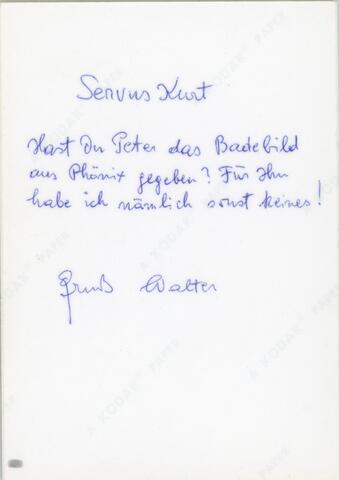 Servus Kurt
Hast Du Peter das Badebild
aus Phönix gegeben? Für Ihn
habe ich nämlich sonst keines!
Gruß Walter
A KODAK PAPER
A KODAK PAPER
A KODAK PAPER
A KODAK PAPER